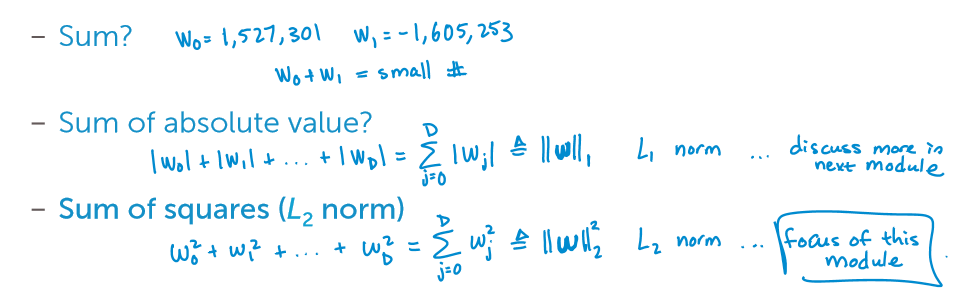 – Sum? w₀ = 1,527,301 w₁ = -1,605,253
w₀ + w₁ = small #
– Sum of absolute value?
|w₀| + |w₁| + ... + |w_D| = ∑_{j=0}^{D} |w_j| ≜ ||w||₁ L₁ norm ... discuss more in next module
– Sum of squares (L₂ norm)
w₀² + w₁² + ... + w_D² = ∑_{j=0}^{D} w_j² ≜ ||w||₂² L₂ norm ... focus of this module